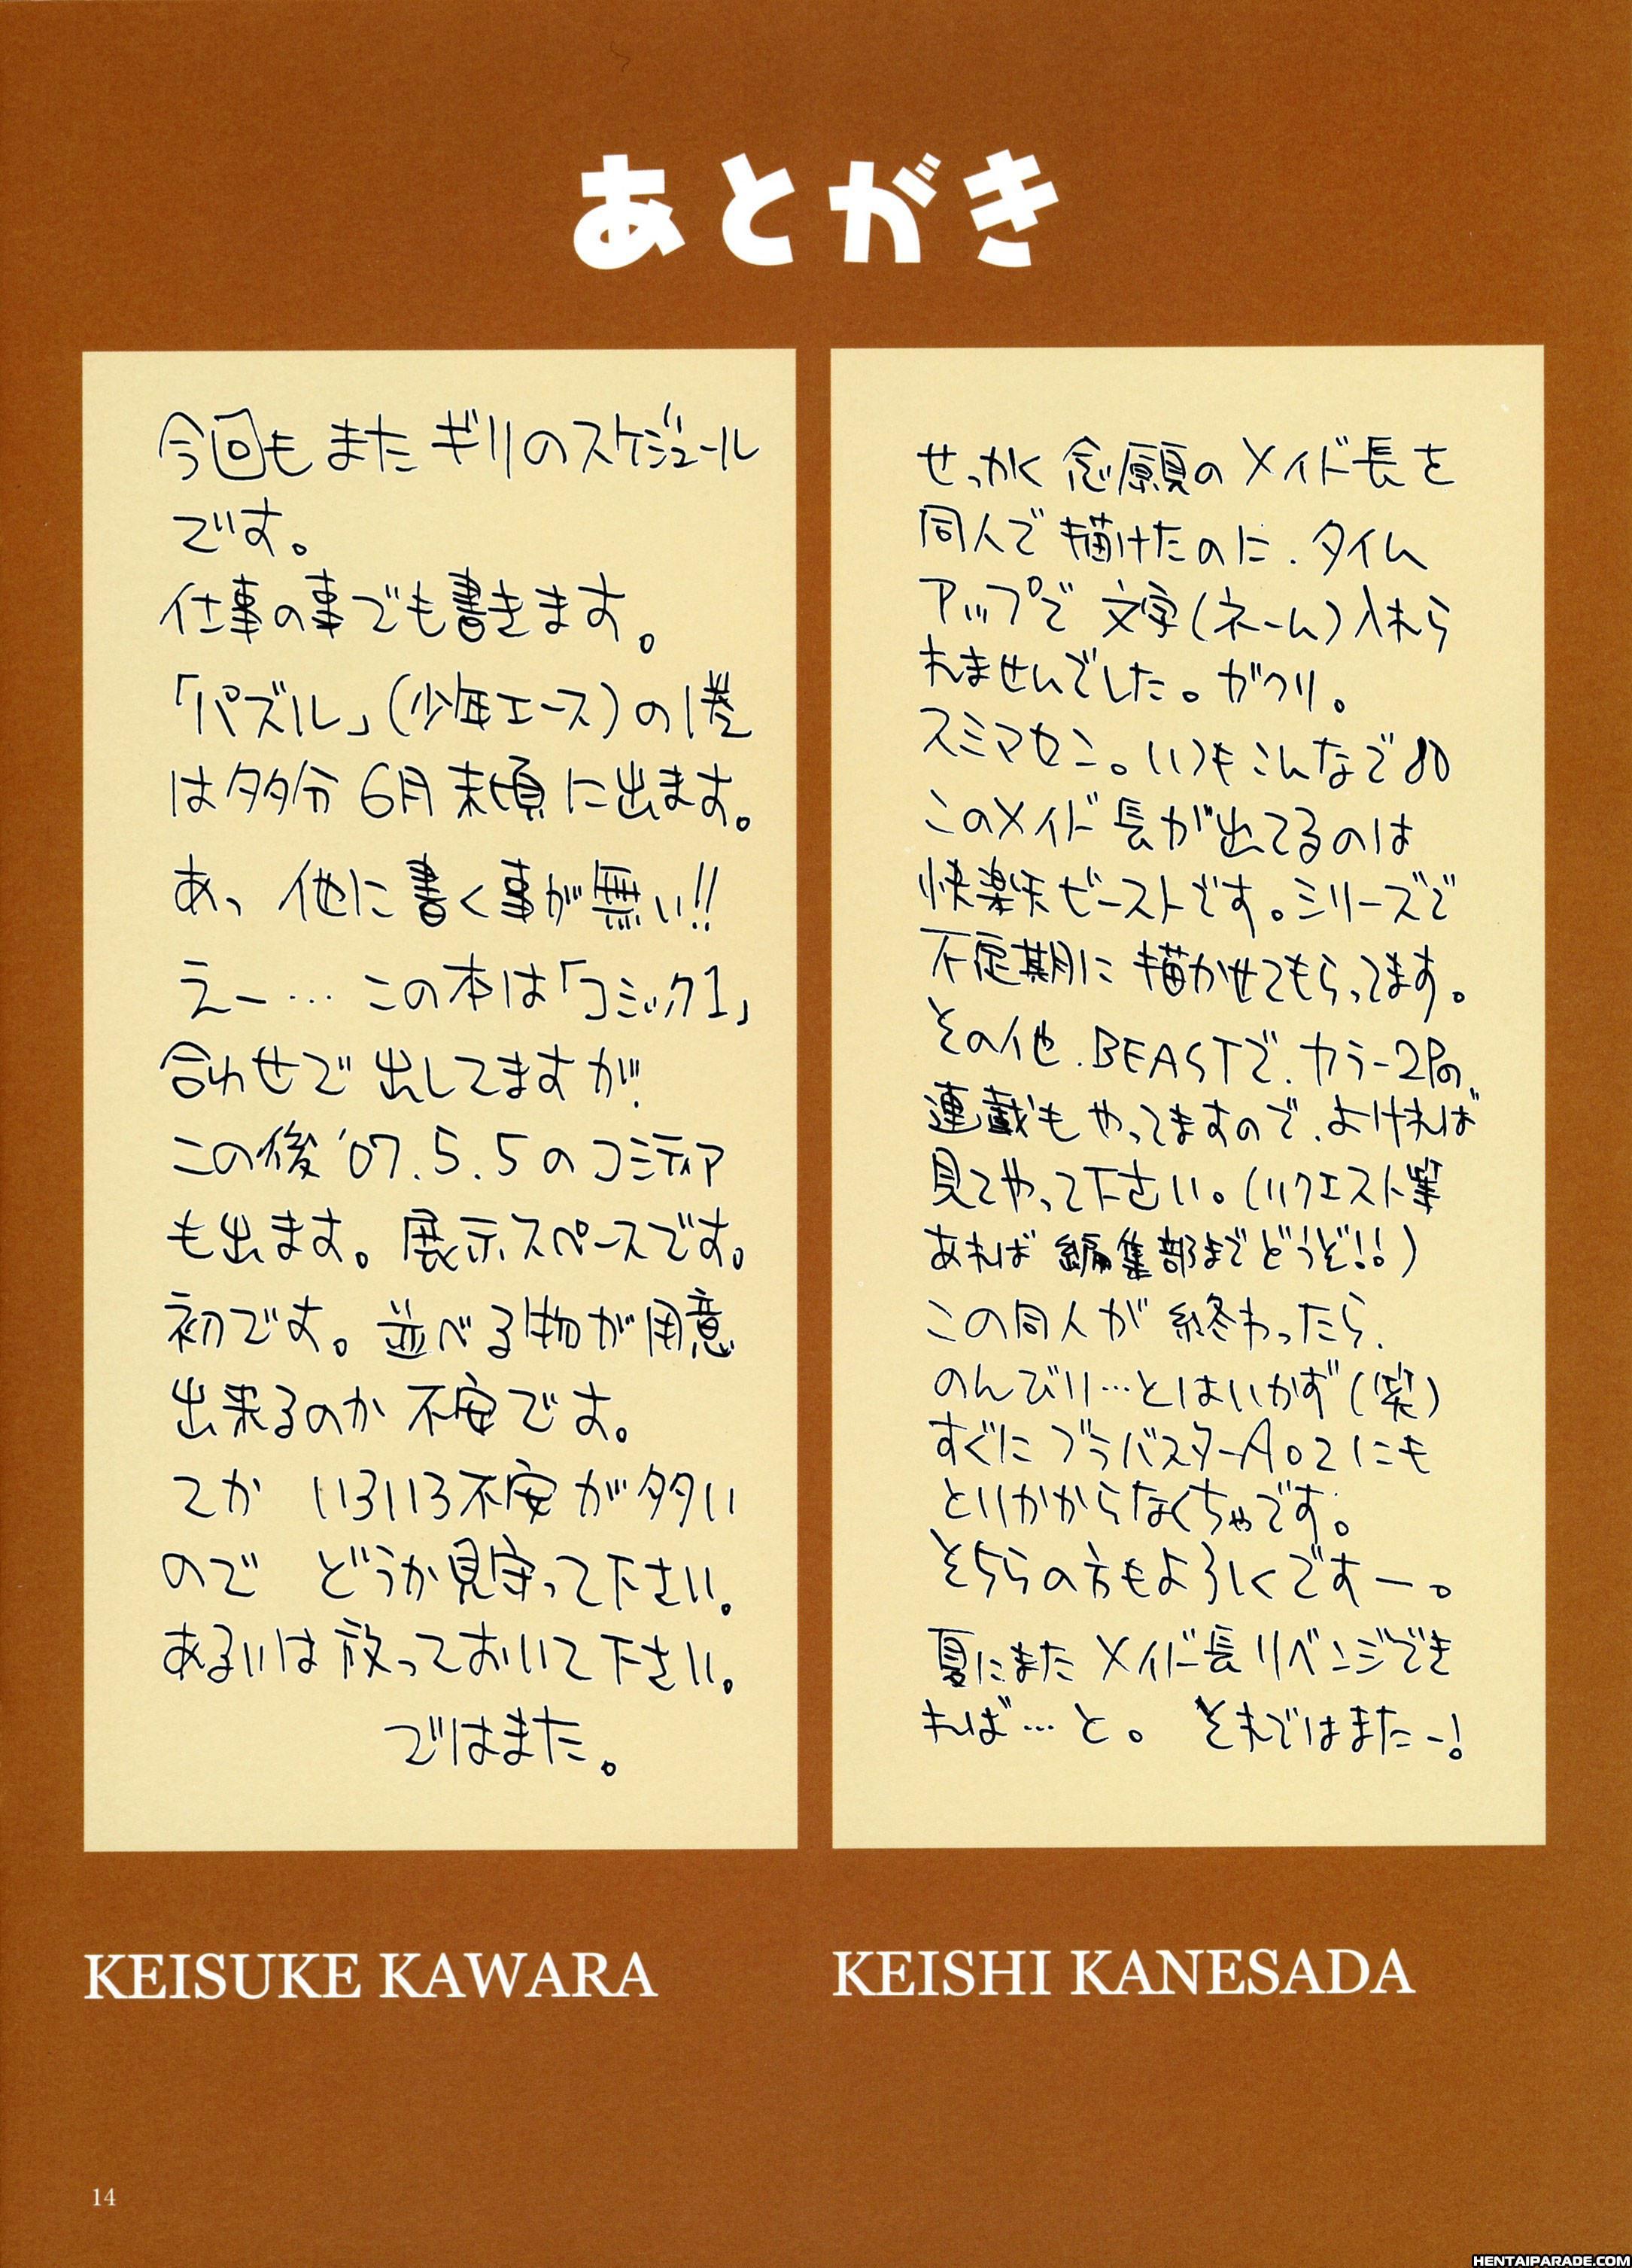 あとがき
今回もまたギリのスケジュール
です。
仕事の事でも書きます。
「パズル」(少年エース)の1巻
は多分6月末頃に出ます。
あっ 他に書く事が無い!!
えー…この本は「コミック1」
合わせで出してますが、
この後'07.5.5のコミティア
も出ます。展示スペースです。
初です。並べる物が用意
出来るのか不安です。
てか いろいろ不安が多い
ので どうか見守って下さい。
あるいは放っておいて下さい。
ではまた。
せっかく念願のメイド長を
同人で描けたのに、タイム
アップで文字(ネーム)入れら
れませんでした。ガクリ。
スミマセン。いつもこんなで
このメイド長が出てるのは
快楽天ビーストです。シリーズで
不定期に描かせてもらってます。
その他、BEASTで、カラー2Pの、
連載もやってますので、よければ
見てやって下さい。(リクエスト等
あれば編集部までどうぞ!!)
この同人が終わったら、
のんびり…とはいかず(笑)
すぐにブラバスターA02にも
とりかからなくちゃです。
そちらの方もよろしくですー。
夏にまたメイド長リベンジでき
れば…と。それではまたー!
KEISUKE KAWARA
KEISHI KANESADA
14
HENTAIPARADE.COM